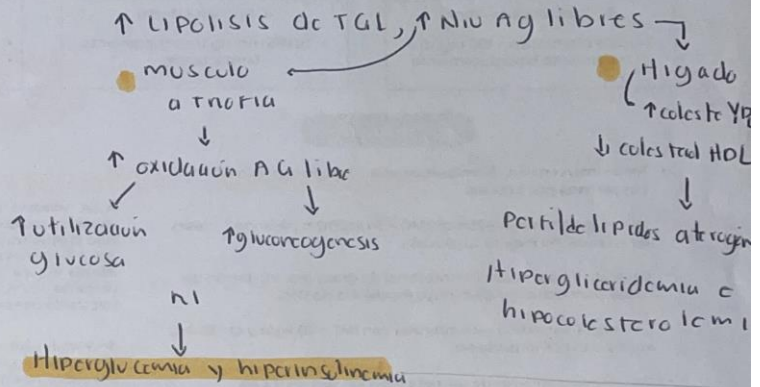 ↑ Lipolisis de TGL, ↑ Niv Ag libres
musculo
↓
↑ oxidación AG libre
↑ utilización glucosa
↑ gluconeogenesis
↓
Hiperglucemia y hiperinsulinemia
Higado
↑ coleste
↓ colesterol HDL
↓
Perfil de lipidos
Hipergliceridemia c
hipocolesterolemi